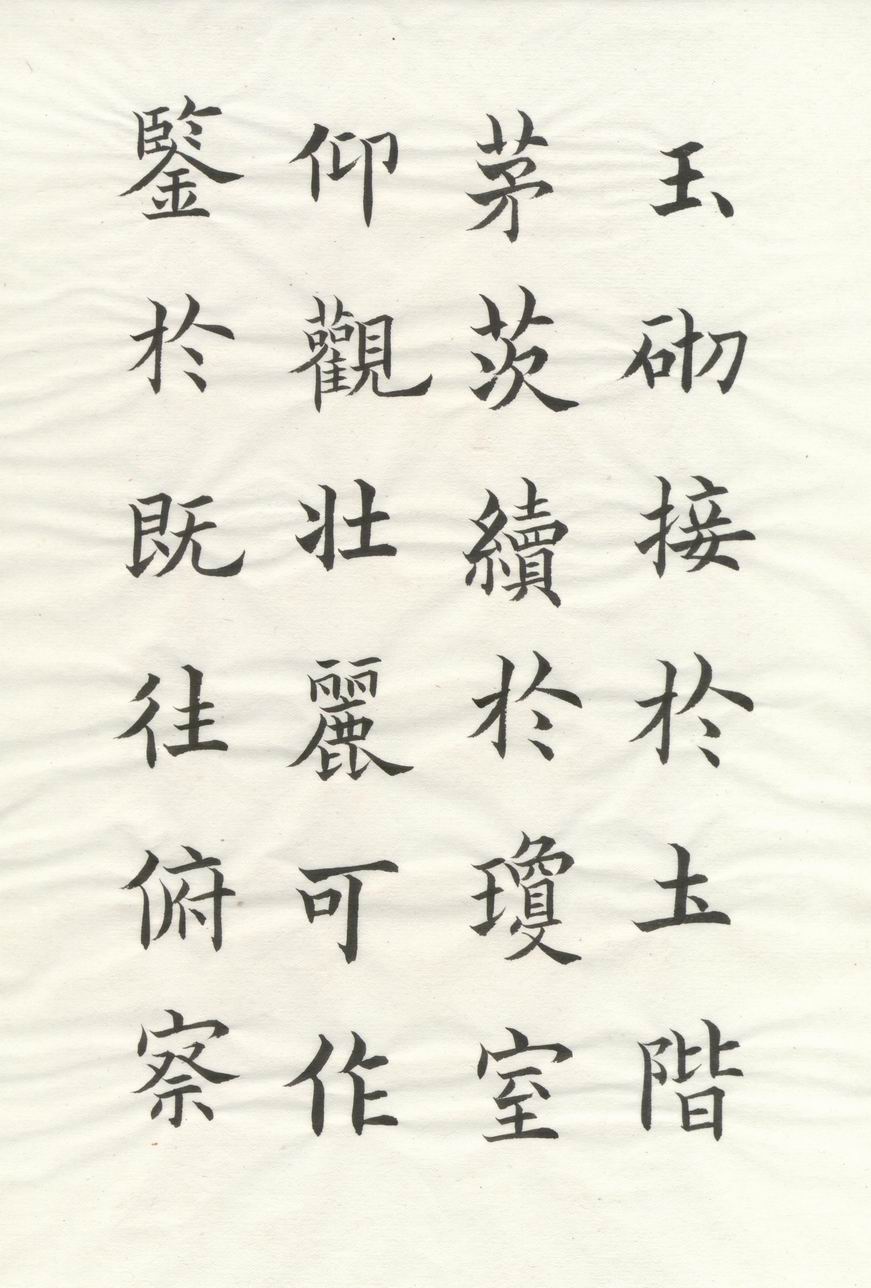 玉砌接於土階
茅茨續於瓊室
仰觀壯麗可作
鑒於既往俯察